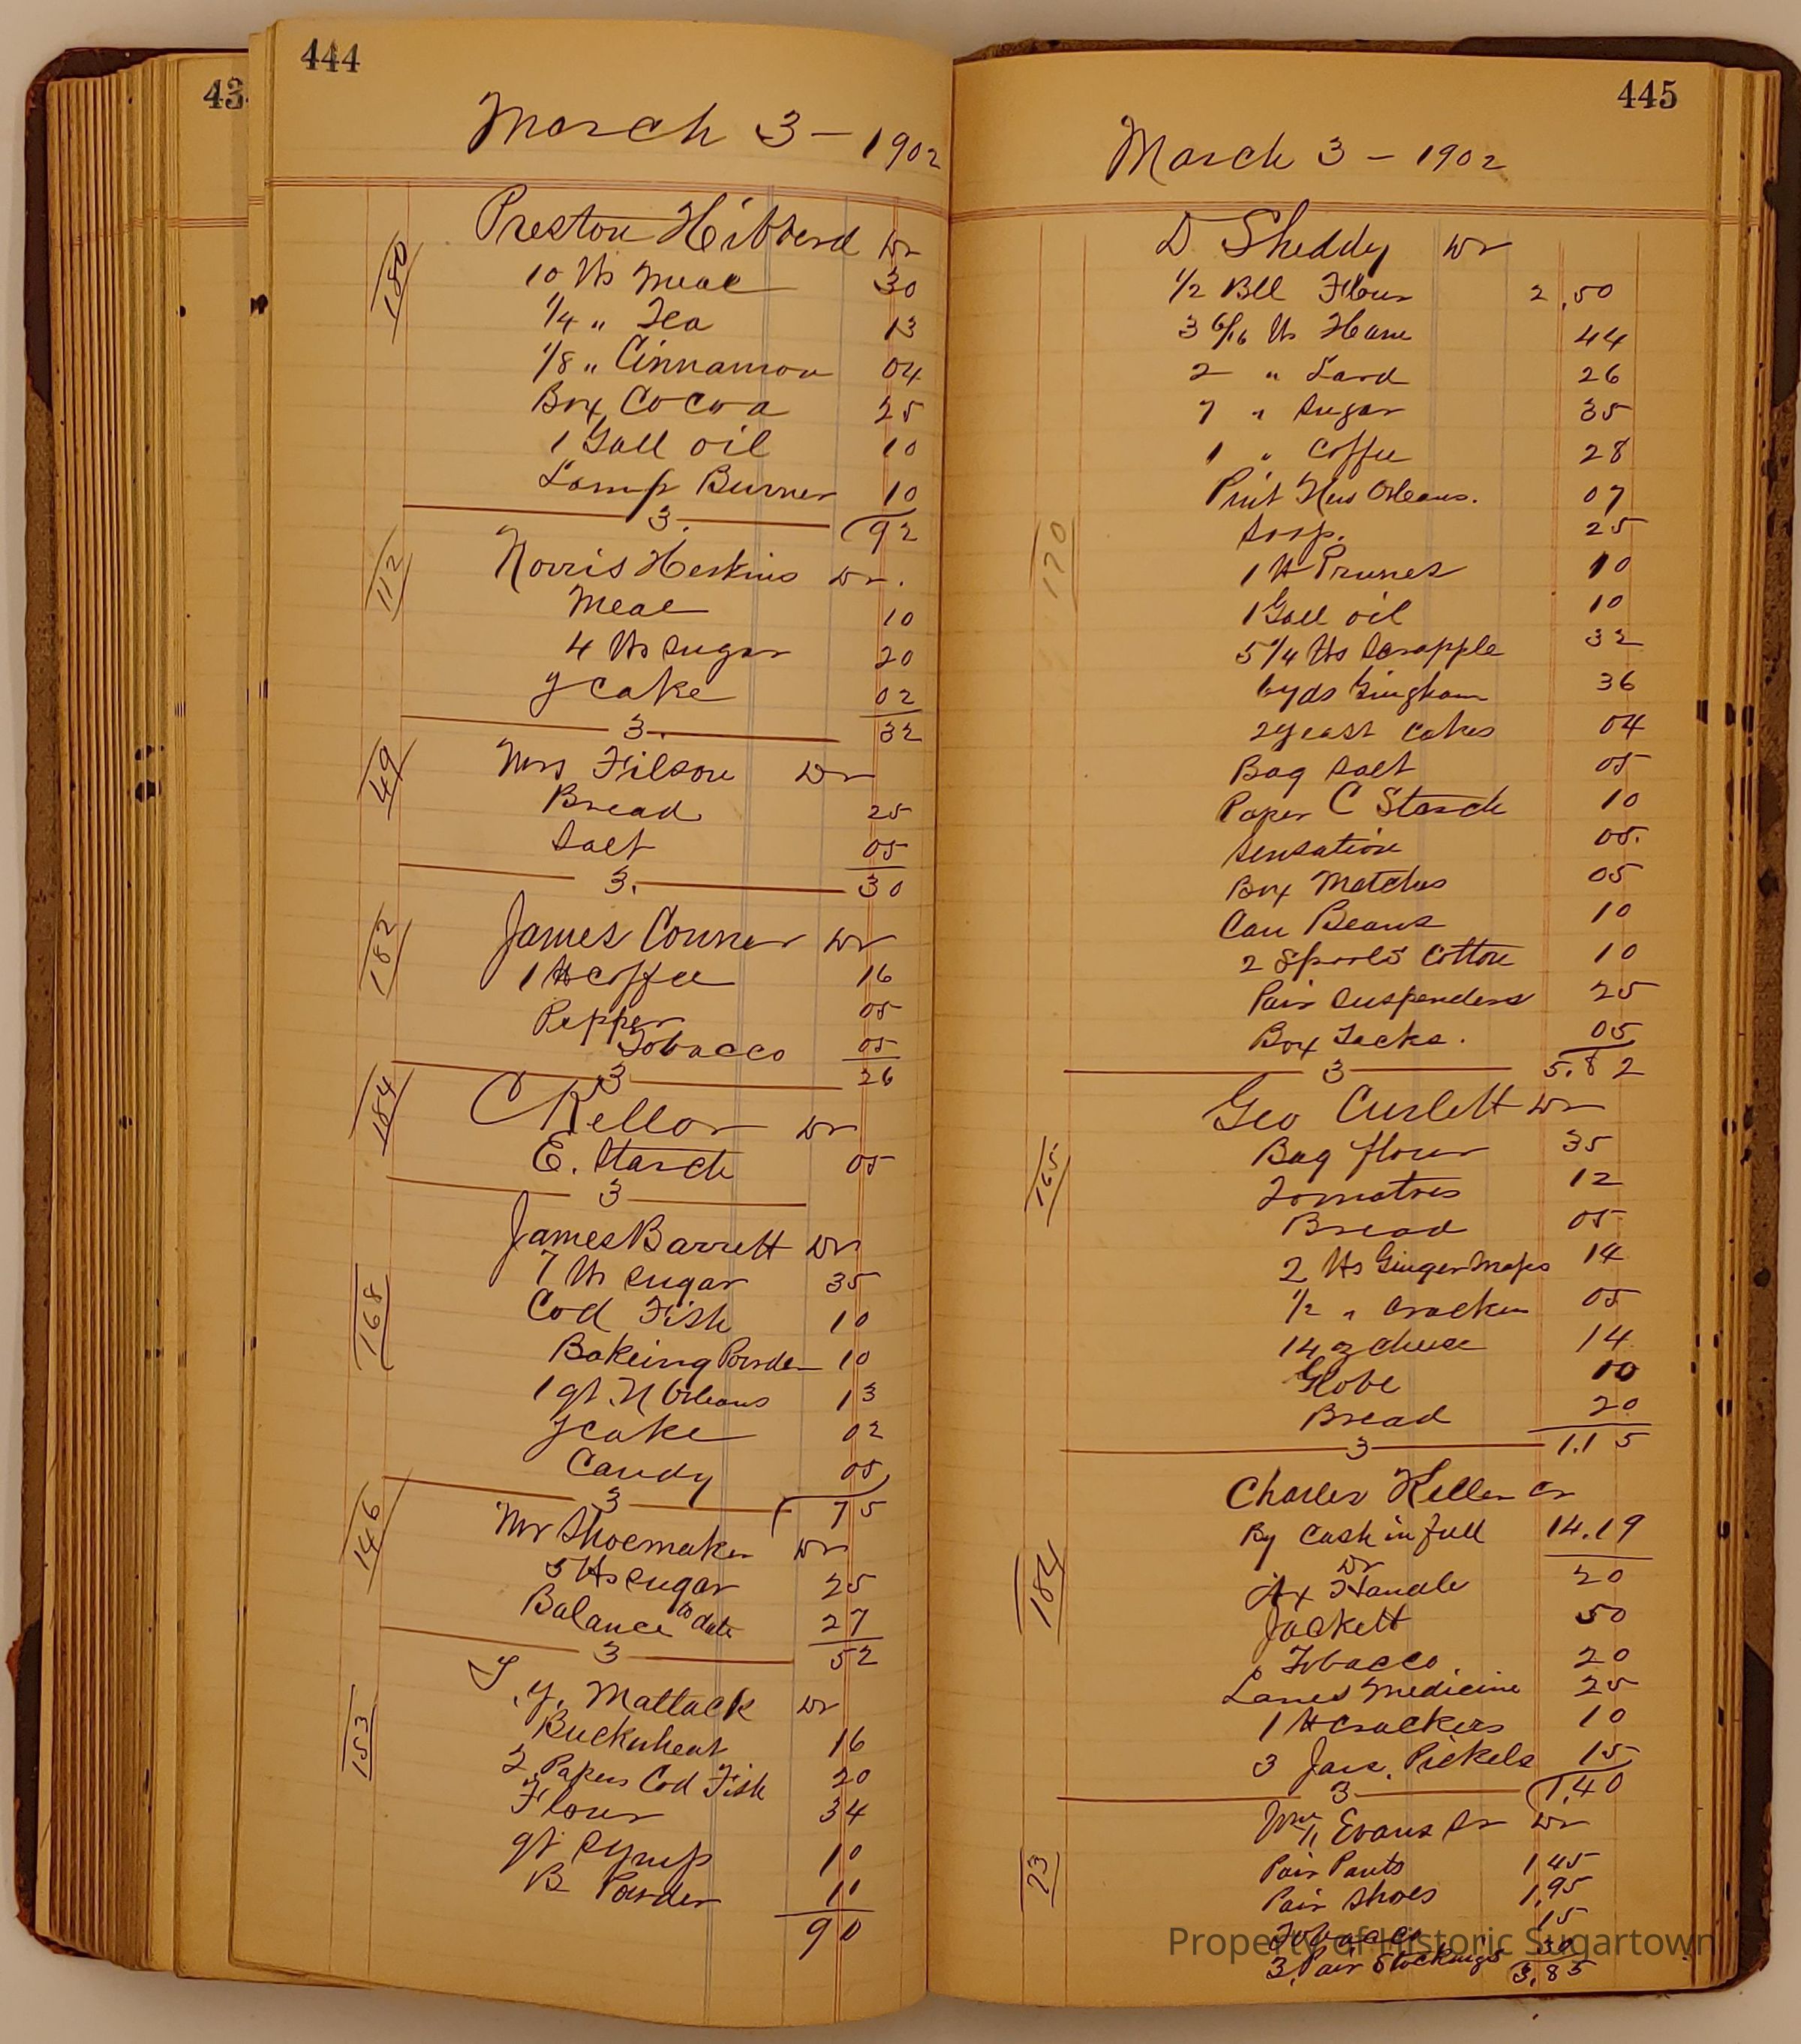 43
444
March 3 - 1902
180
Preston Hibberd Dr
10 lbs Meal 30
1/4 " Tea 13
1/8 " Cinnamon 04
Box Cocoa 25
1 Gall oil 10
Lamp Burner 10
3. 92
112
Norris Herkins Dr.
Meal 10
4 lbs Sugar 20
y Cake 02
3. 32
49
Mrs Filson Dr
Bread 25
Salt 05
3. 30
182
James Conner Dr
1 lb Coffee 16
Pepper 05
Tobacco 05
3 26
184
C Kellor Dr
E. Starch 05
3
James Barrett Dr
168
7 lbs Sugar 35
Cod Fish 10
Bakeing Powder 10
1 qt. N Orleans 13
y Cake 02
Candy 05
3 75
146
Mr Shoemaker Dr
5 lbs Sugar 25
Balance to date 27
3 52
153
T. y. Mattack Dr
Buckwheat 16
2 Papers Cod Fish 20
Flour 34
qt Syrup 10
B Powder 10
90
445
March 3 - 1902
D Sheddy Dr
1/2 Bll Flour 2.50
3 6/16 lb Ham 44
2 " Lard 26
7 " Sugar 35
1 " Coffee 28
Pint New Orleans. 07
Soap. 25
170
1 lb Prunes 10
1 Gall oil 10
5 1/4 lbs Scrapple 32
6 yds Gingham 36
2 yeast Cakes 04
Bag Salt 05
Paper C Starch 10
Sensation 05.
Box Matches 05
Can Beans 10
2 Spools Cotton 10
Pair Suspenders 25
Box Tacks. 05
3 5.82
Geo Curlett Dr
165
Bag flour 35
Tomatoes 12
Bread 05
2 lbs Ginger Snaps 14
1/2 " Cracker 05
14 oz Cheese 14
Globe 10
Bread 20
3 1.15
Charles Keller Cr
By Cash in full 14.19
184
Dr
Ax Handle 20
Jackett 50
Tobacco 20
Lanes Medicine 25
1 lb Crackers 10
3 Jars. Pickels 15
3 1.40
Wm Evans Sr Dr
23
Pair Pants 1.45
Pair Shoes 1.95
Tobacco 15
3 Pair Stockings 30
3.85
Property of Historic Sugartown